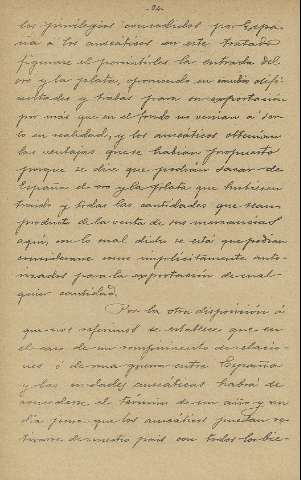 -24-
los privilegios concedidos por Espa-
ña a los anseáticos en este tratado
figurase el permitirles la entrada del
oro y la plata, oponiendo en cambio difi-
cultades y trabas para su exportación
por más que en el fondo no venian a ser-
lo en realidad, y los anseáticos obtenian
las ventajas que se habian propuesto
porque se dice que podrian sacar de
España el oro y la plata que hubiesen
traido y todas las cantidades que sean
producto de la venta de sus mercancias
aquí, con lo cual dicho se está que podian
considerarse como implicitamente auto-
rizados para la exportación de cual-
quier cantidad.
Por la otra disposición á
que nos referimos se establece que en
el caso de un rompimiento de relacio-
nes ó de una guerra entre España
y las ciudades anseáticas habrá de
concederse el término de un año y un
día para que los anseáticos puedan re-
tirarse de nuestro país con todos los bie-